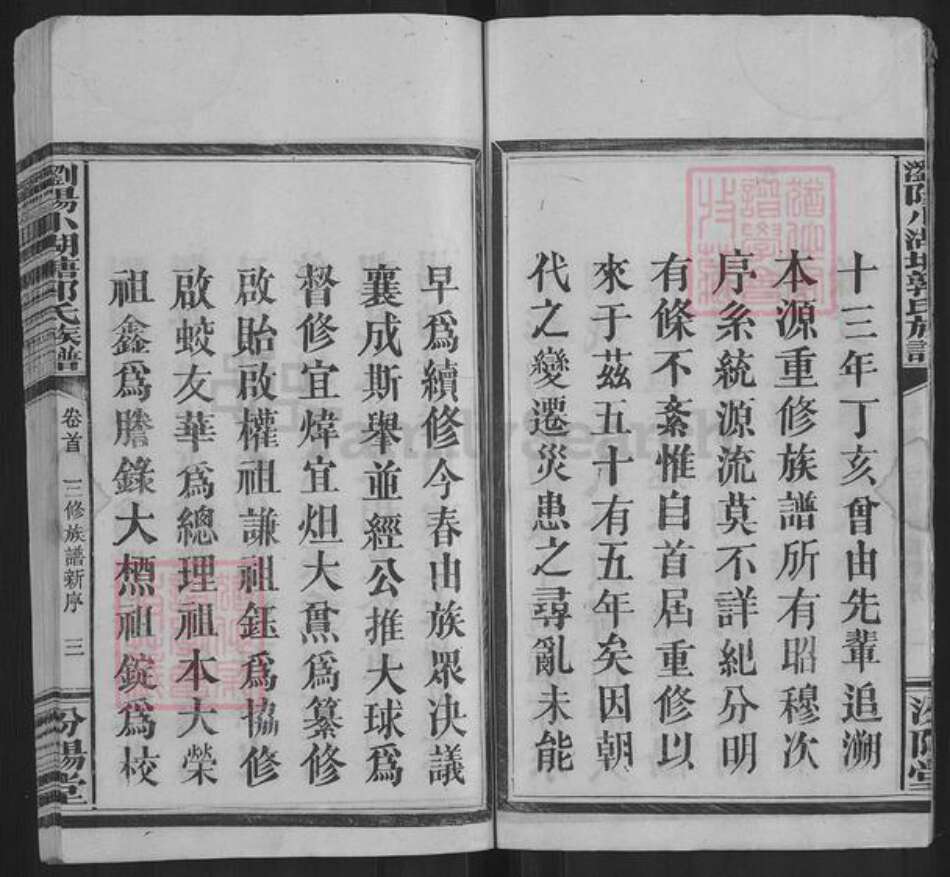 十三年丁亥曾由先輩追溯
本源重修族譜所有昭穆次
序系統源流莫不詳紀分明
有條不紊惟自首屆重修以
來于茲五十有五年矣因朝
代之變遷災患之尋亂未能
早為續修今春由族眾決議
襄成斯舉並經公推大球為
督修宜煒宜炟大鼐為纂修
啟貽啟權祖謙祖鈺為協修
啟蛟友華為總理祖本大榮
祖鑫為謄錄大櫄祖錠為校
瀏陽小湖塘郭氏族譜
卷首
三修族譜新序
三
汾陽堂